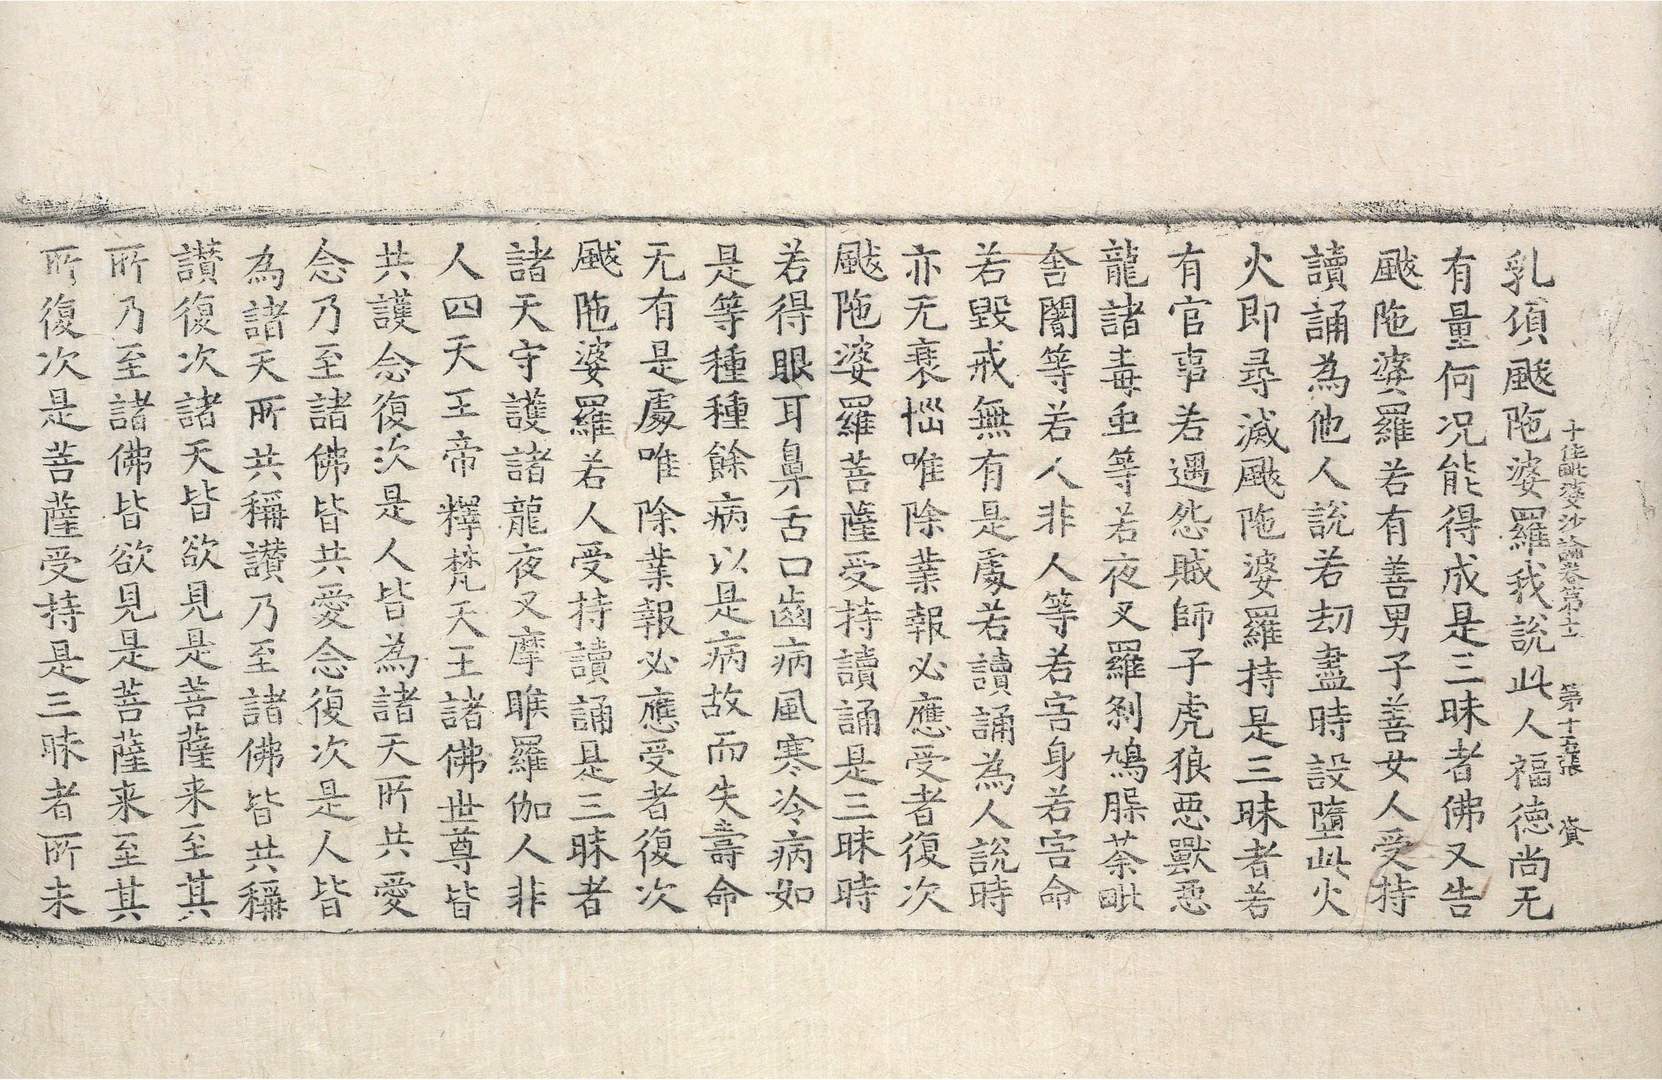 十住毗婆沙論卷第十二 第十五張 資
乳頃颰陁婆羅我說此人福德尚无
有量何况能得成是三昧者佛又告
颰陁婆羅若有善男子善女人受持
讀誦為他人說若劫盡時設墮此火
火即尋滅颰陁婆羅持是三昧者若
有官事若遇怨賊師子虎狼惡獸惡
龍諸毒虫等若夜叉羅刹鳩荼毗
舍闍等若人非人等若害身若害命
若毀戒無有是處若讀誦為人說時
亦无衰惱唯除業報必應受者復次
颰陁婆羅菩薩受持讀誦是三昧時
若得眼耳鼻舌口齒病風寒冷病如
是等種種餘病以是病故而失壽命
无有是處唯除業報必應受者復次
颰陁婆羅若人受持讀誦是三昧者
諸天守護諸龍夜叉摩睺羅伽人非
人四天王帝釋梵天王諸佛世尊皆
共護念復次是人皆為諸天所共愛
念乃至諸佛皆共愛念復次是人皆
為諸天所共稱讃乃至諸佛皆共稱
讃復次諸天皆欲見是菩薩来至其
所乃至諸佛皆欲見是菩薩来至其
所復次是菩薩受持是三昧者所未